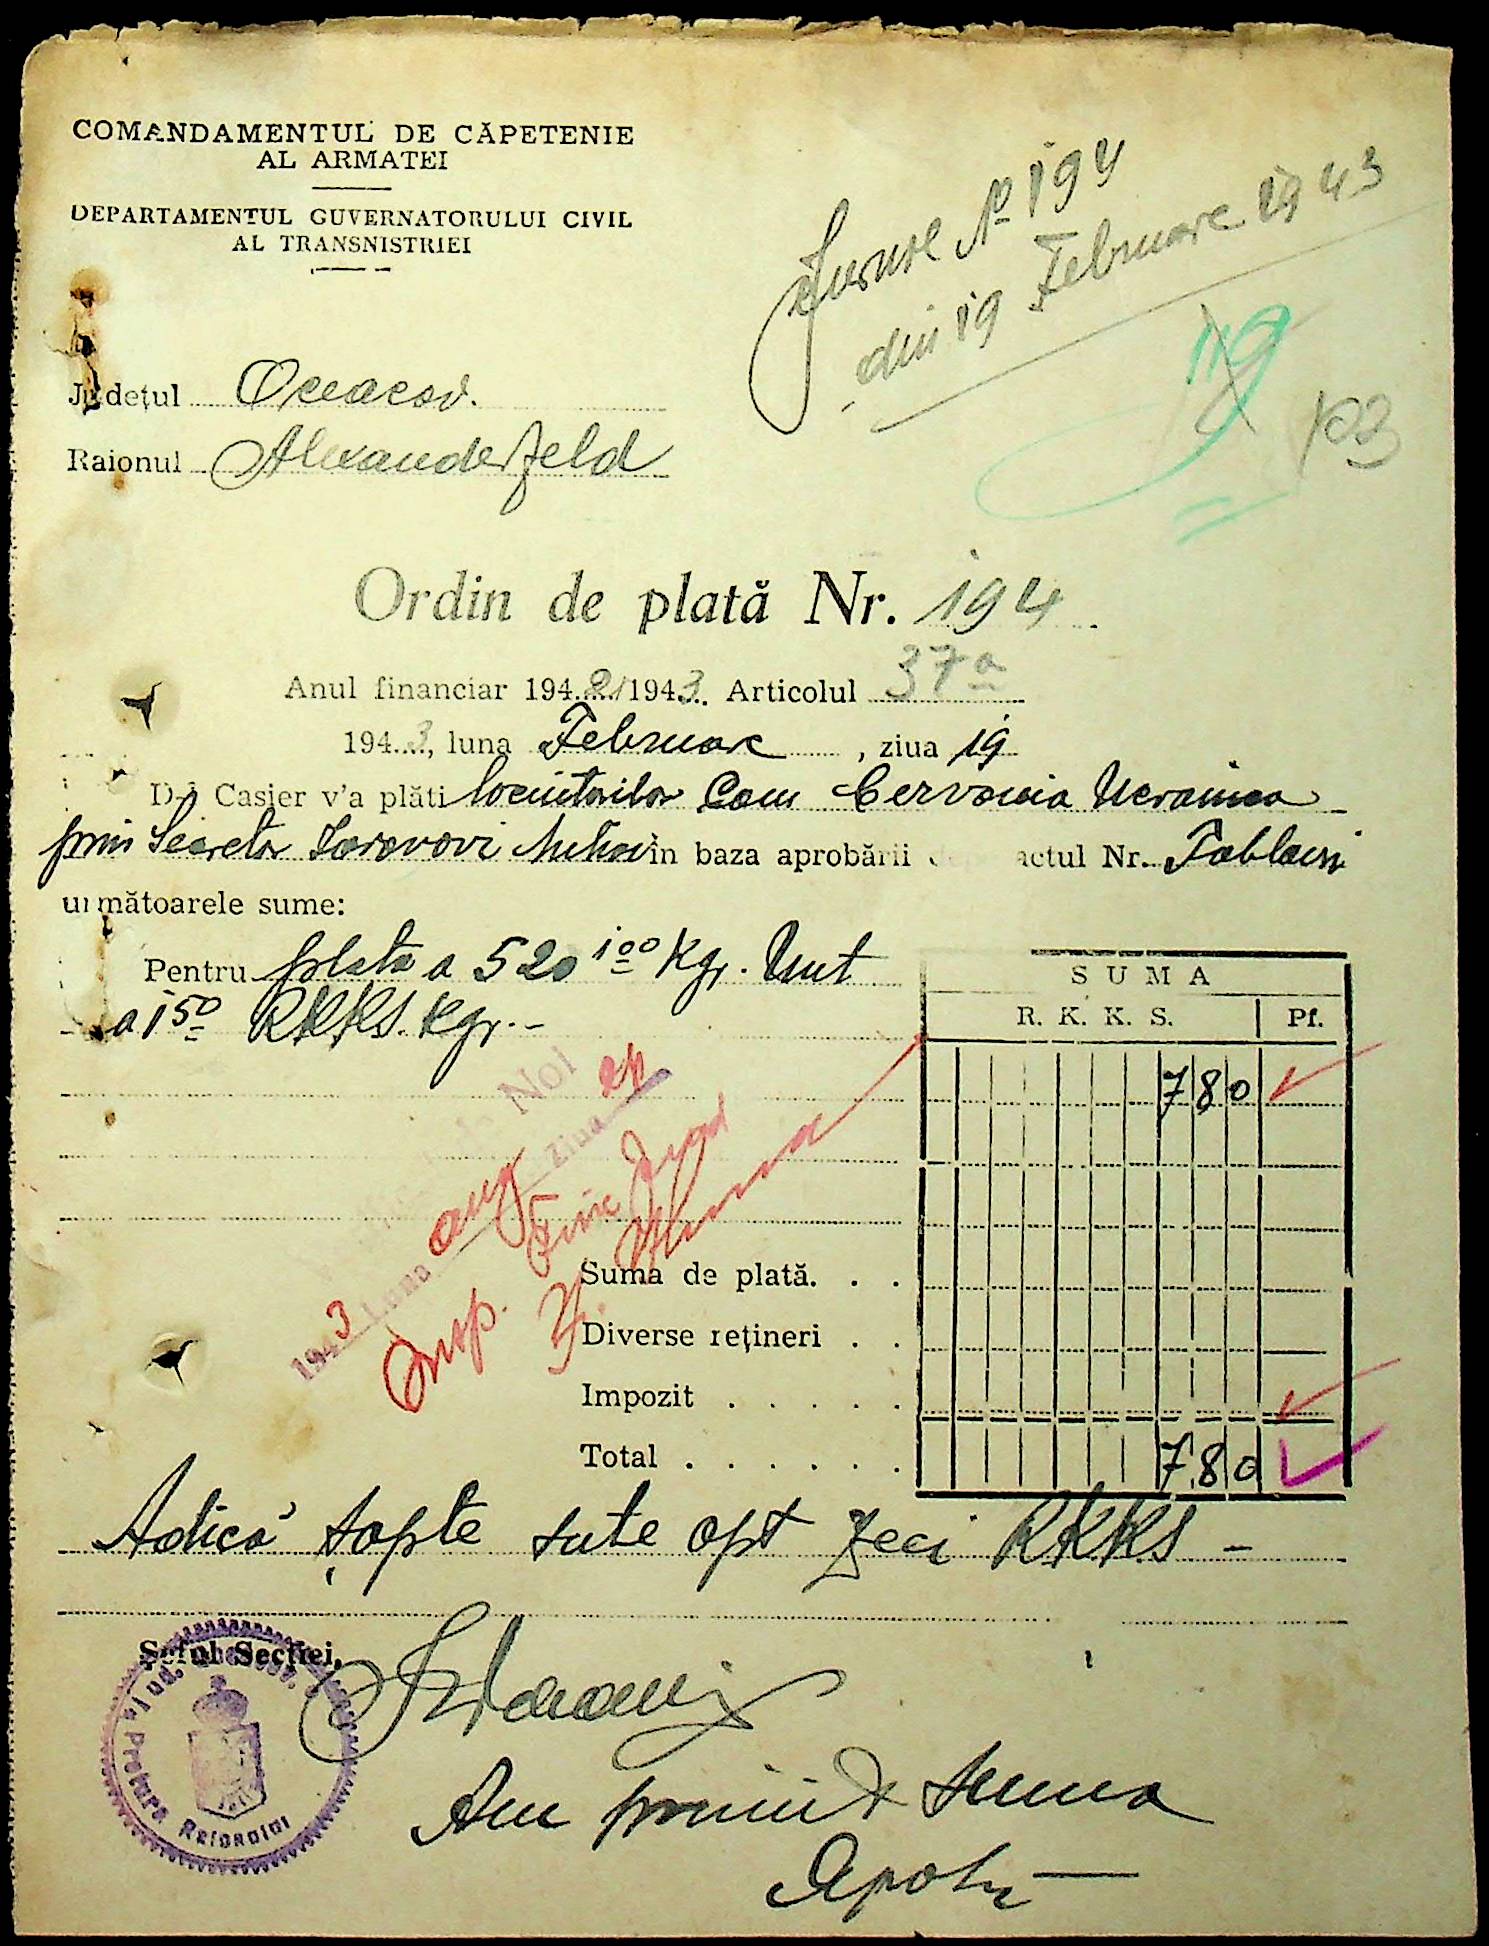 COMANDAMENTUL DE CĂPETENIE
AL ARMATEI
DEPARTAMENTUL GUVERNATORULUI CIVIL
AL TRANSNISTRIEI
Jurnal № 194
din 19 Februarie 1943
119
103
Județul Oceacov.
Raionul Alexanderfeld
Ordin de plată Nr. 194
Anul financiar 1942/1943. Articolul 37a
1943, luna Februarie, ziua 19
D-l Casier v'a plăti locuitorilor Com Cervonia Ucrainca
prin Secretar in baza aprobării actul Nr. Tablou
următoarele sume:
Pentru plata a 520 100 Kgr. Unt
a 150 RKKS. Kgr. -
SUMA
R. K. K. S. Pf.
780
Nol
1943 Luna aug Ziua 24
Insp. Finc Jud
Suma de plată. . .
Diverse rețineri . .
Impozit . . . . .
Total . . . . . . 780
Adică șapte sute opt zeci RKKS -
Șeful Secției,
Pretura Raionului
Am primit suma